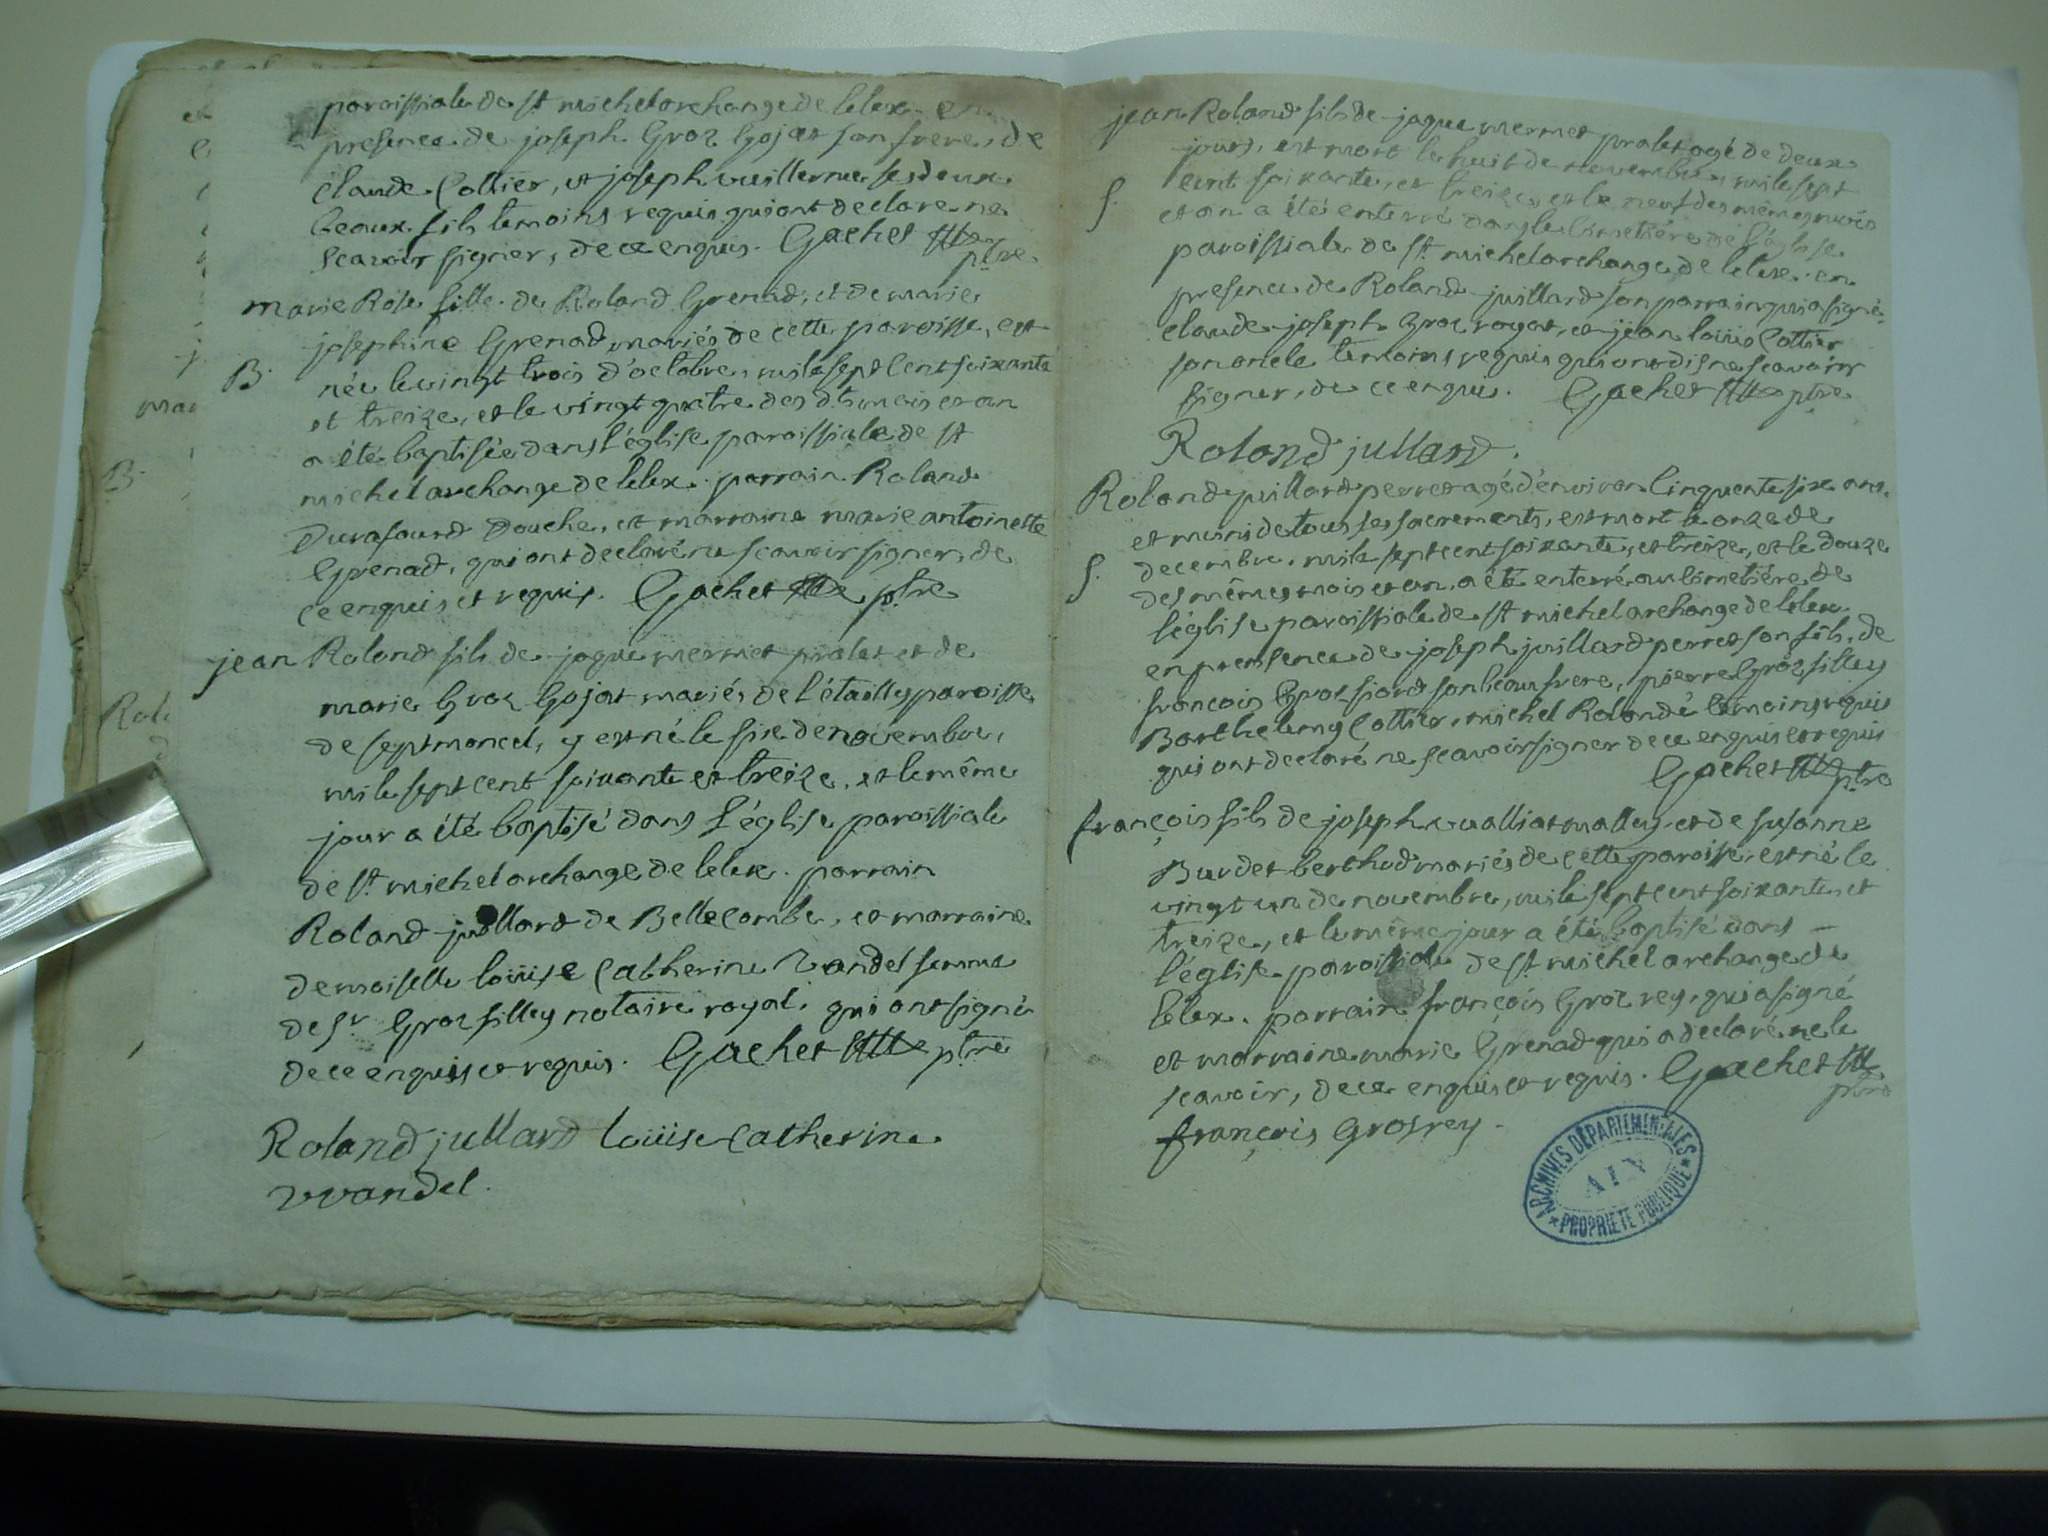 paroissiale de St michel archange de lelex. en
presence de joseph Groz Gojat son frere, de
claude Cottier, et joseph vuillerme ses deux
beaux fils temoins requis qui ont declare ne
scavoir signer, de ce enquis. Gachet ptre
marie Rose fille de Roland Grenad, et de marie
josephine Grenad mariés de cette paroisse, est
B. née le vingt trois d'octobre, mile sept cent soixante
et treize, et le vingt quatre des dts mois et an
a été baptisée dans l'église paroissiale de St
michel archange de lelex. parrain Roland
Durafourd Douche, et marraine marie antoinette
Grenad, qui ont declaré ne scavoir signer, de
ce enquis et requis. Gachet ptre
jean Roland fils de jaque mermet pralet et de
marie Groz Gojat mariés de l'étailly paroisse
de septmoncel, y est né le six de novembre,
mile sept cent soixante et treize, et le même
jour a été baptisé dans l'église paroissiale
de St michel archange de lelex. parrain
Roland juillard de Bellecombe, et marraine
demoiselle loüise Catherine Vandel femme
de Sr Groz filley notaire royal, qui ont signé
de ce enquis et requis. Gachet ptre
Roland jullard loüise Catherine
vvandel.
jean Roland fils de jaque mermet pralet agé de deux
jours, est mort le huit de novembre mile sept
S. cent soixante, et treize, et le neuf des mêmes mois
et an a été enterré dans le Cimetiére de l'église
paroissiale de St michel archange de lelex. en
presence de Roland juillard son parrain qui a signé,
claude joseph Groz royat, et jean loüis Cottier
son oncle temoins requis qui ont dis ne scavoir
signer, de ce enquis. Gachet ptre
Roland jullard.
Roland juillard perret agé d'environ Cinquente six ans.
et muni de tous ses sacrements, est mort le onze de
S. decembre. mile sept cent soixante, et treize, et le douze
des mêmes mois et an, a été enterré au Cimetiére de
l'église paroissiale de St michel archange de lelex.
en presence de joseph juillard perret son fils, de
françois Groz fiord son beau frere, pierre Groz filley
Barthelemy Cottier, michel Rolandé temoins requis
qui ont declaré ne scavoir signer de ce enquis et requis
Gachet ptre
françois fils de joseph vualliat malley et de susanne
Burdet berthod mariés de cette paroisse, est né le
vingt un de novembre, mile sept cent soixante, et
treize, et le même jour a été baptisé dans
l'église paroissiale de St michel archange de
lelex. parrain françois Groz rey, qui a signé
et marraine marie Grenad qui a declaré ne le
scavoir, de ce enquis et requis. Gachet
ptre
françois Grosrey.
ARCHIVES DEPARTEMENTALES
AIN
PROPRIETE PUBLIQUE